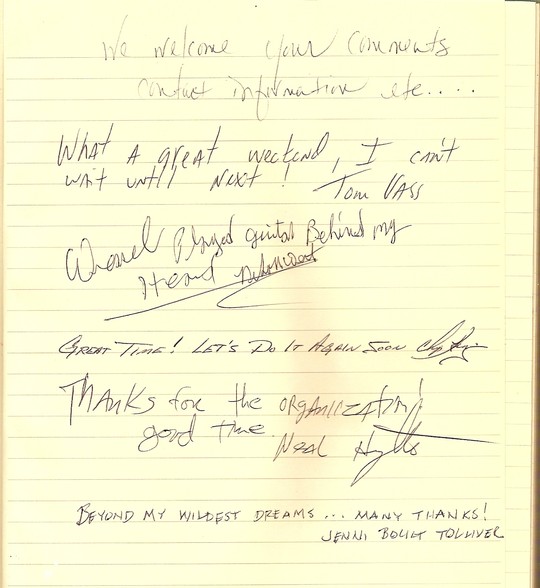 We welcome your comments
contact information etc.....
What A great weekend, I can't
wait until Next! Tom VASS
Played guitar Behind my
Head
GREAT TIME! LET'S DO IT AGAIN SOON
THANKS for the ORGANIZATION!
good time.
Neal
BEYOND MY WILDEST DREAMS... MANY THANKS!
JENNI TOLLIVER